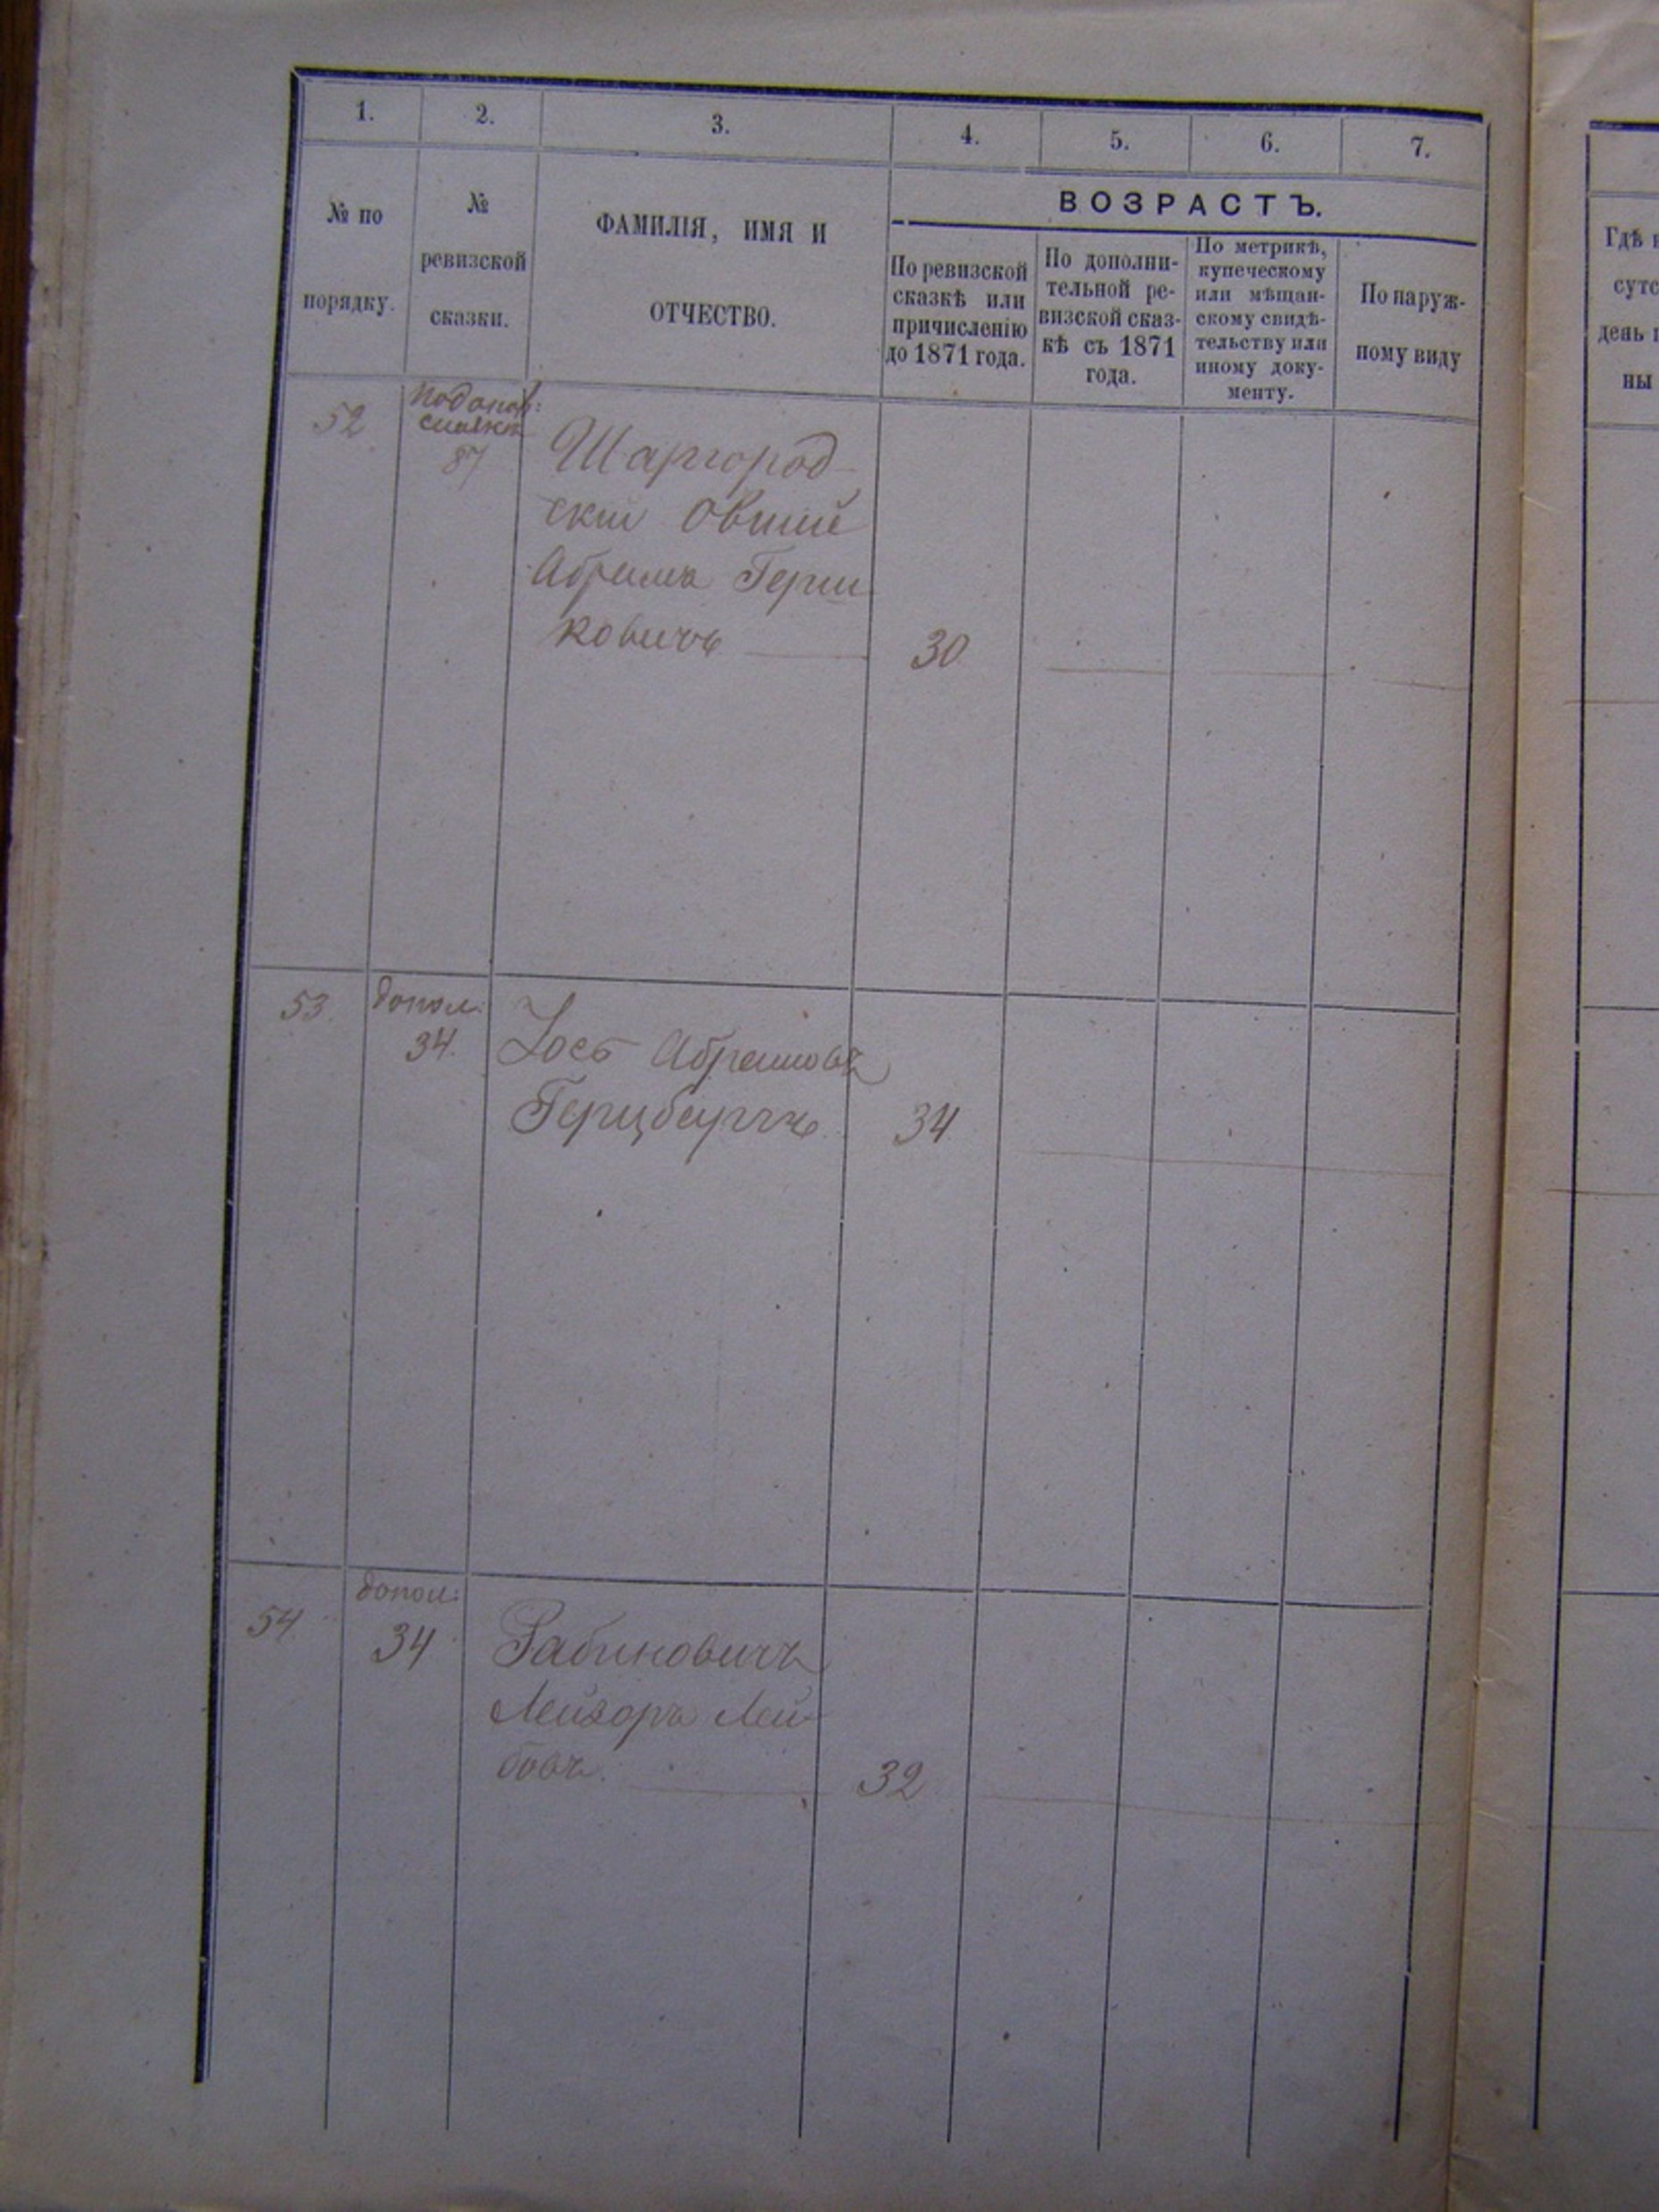 1. 2. 3. 4. 5. 6. 7.
№ по
порядку.
№
ревизской
сказки.
ФАМИЛІЯ, ИМЯ И
ОТЧЕСТВО.
ВОЗРАСТЪ.
По ревизской
сказкѣ или
причисленію
до 1871 года.
По дополни-
тельной ре-
визской сказ-
кѣ съ 1871
года.
По метрикѣ,
купеческому
или мѣщан-
скому свидѣ-
тельству или
иному доку-
менту.
По наруж-
ному виду
Гдѣ
день
ны
52
87
Шаргород-
скій Овший
Абрамъ Герш-
ковичъ
30
53.
допол:
34.
Іось Абрамовъ
Герцбергъ
34
54
допол:
34
Рабиновичъ
Лейзоръ Лей-
бовъ.
32